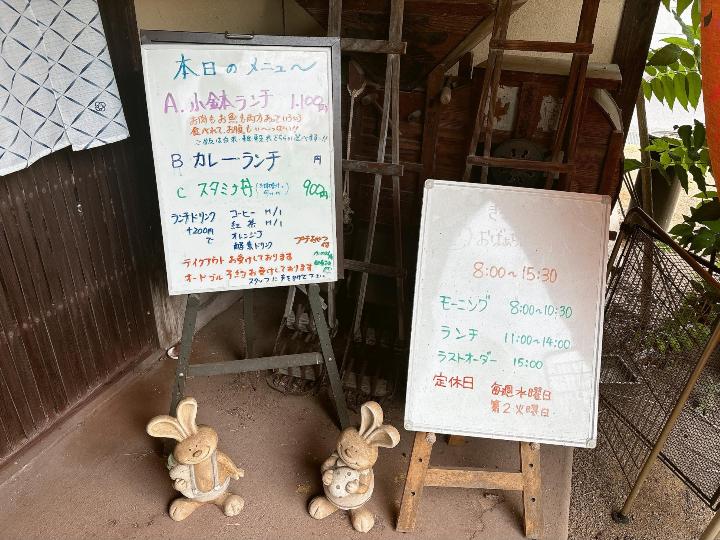 本日のメニュ～
A. 小鉢ランチ 1.100円
お肉もお魚も両方あっていろいろ
食べれて、お腹もい～っぱい!!
ご飯は白米・雑穀米どちらか選べます!!
B カレーランチ 円
C スタミナ丼 900円
ランチドリンク コーヒー H/I
+200円 紅茶 H/I
で オレンジJ
酵素ドリンク
プチおやつ付
テイクアウトお受けしております
オードブル予約お受けしております
スタッフに声をかけて下さい
8:00～15:30
モーニング 8:00～10:30
ランチ 11:00～14:00
ラストオーダー 15:00
定休日 毎週水曜日
第2火曜日